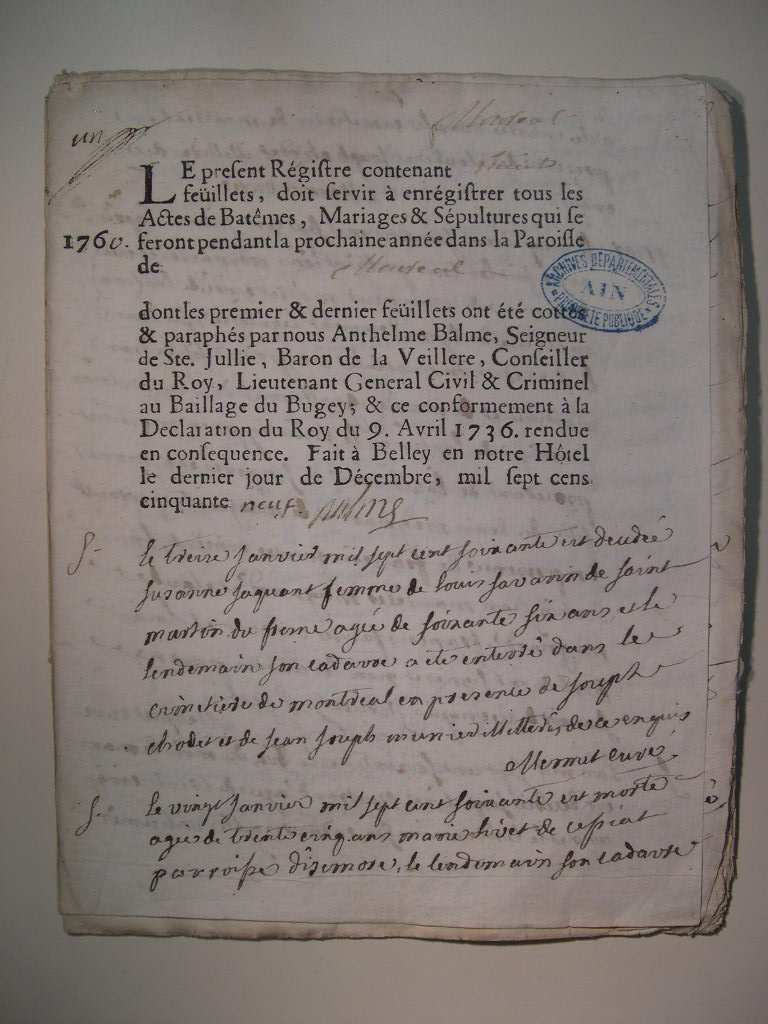 un
Montreal
LE preſent Régiſtre contenant
feüillets, doit ſervir à enrégiſtrer tous les
Actes de Batêmes, Mariages & Sépultures qui ſe
1760. feront pendant la prochaine année dans la Paroiſſe
de Montreal
ARCHIVES DÉPARTEMENTALES
AIN
PROPRIÉTÉ PUBLIQUE
dont les premier & dernier feüillets ont été cottés
& paraphés par nous Anthelme Balme, Seigneur
de Ste. Jullie, Baron de la Veillere, Conſeiller
du Roy, Lieutenant General Civil & Criminel
au Baillage du Bugey; & ce conformement à la
Declaration du Roy du 9. Avril 1736. rendue
en conſequence. Fait à Belley en notre Hôtel
le dernier jour de Décembre, mil ſept cens
cinquante neuf. Balme
S.
le treize janvier mil sept cent soixante est decedée
susanne jaquant femme de louis savarin de saint
martin du frene agée de soixante six ans et le
lendemain son cadavre a ete enterré dans le
cimetiere de montreal en presence de joseph
chodet et de jean joseph munier illitterés de ce enquis
Mermet curé
S.
le vingt janvier mil sept cent soixante est morte
agée de trente cinq ans marie livet de cessiat
parroisse d'isernore, le lendemain son cadavre